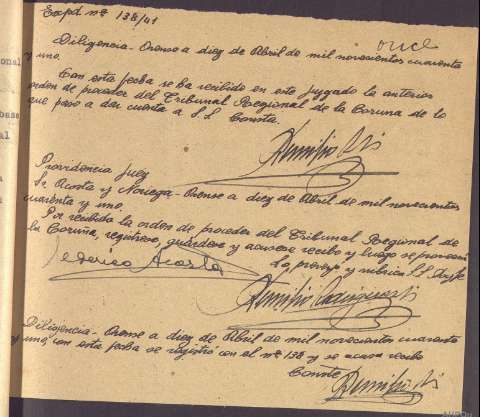 Expd. nº 138/41
once
Diligencia - Orense a diez de Abril de mil novecientos cuarenta
y uno.
Con esta fecha se ha recibido en este juzgado la anterior
orden de proceder del Tribunal Regional de la Coruña de lo
que paso a dar cuenta a S.S. Consta.
Providencia Juez
Sr. Acosta y Noriega - Orense a diez de Abril de mil novecientos
cuarenta y uno.
Por recibida la orden de proceder del Tribunal Regional de
la Coruña, regístrese, guárdese y acúsese recibo y luego se
Lo proveyó y rubrica S.S. Doy fe
Federico Acosta
Diligencia - Orense a diez de Abril de mil novecientos cuarenta
y uno, con esta fecha se registró con el nº 138 y se acusa recibo
Consta